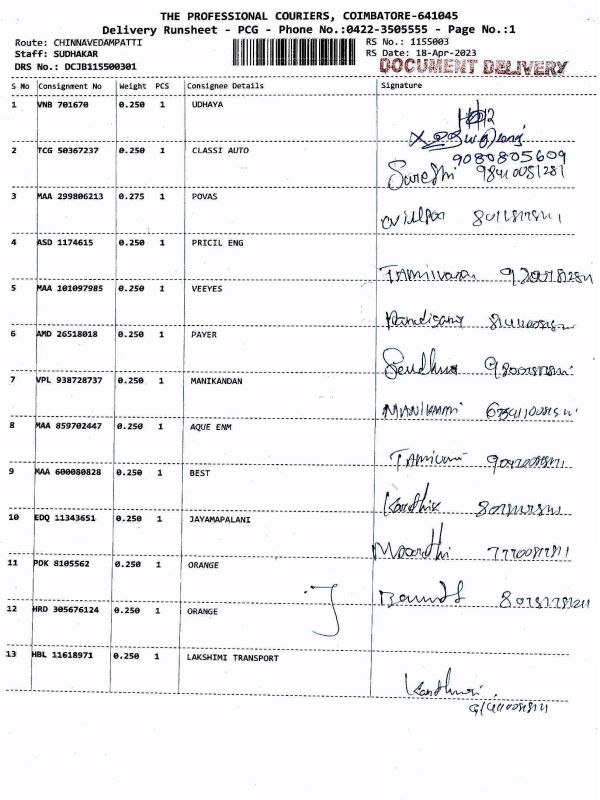 THE PROFESSIONAL COURIERS, COIMBATORE-641045
Delivery Runsheet - PCG - Phone No.:0422-3505555 - Page No.:1
Route: CHINNAVEDAMPATTI RS No.: 1155003
Staff: SUDHAKAR RS Date: 18-Apr-2023
DRS No.: DCJB115500301 DOCUMENT DELIVERY
S No Consignment No Weight PCS Consignee Details Signature
1 VNB 701670 0.250 1 UDHAYA
9080805609
2 TCG 50367237 0.250 1 CLASSI AUTO
3 MAA 299806213 0.275 1 POVAS
4 ASD 1174615 0.250 1 PRICIL ENG
5 MAA 101097985 0.250 1 VEEYES
6 AMD 26518018 0.250 1 PAYER
7 VPL 938728737 0.250 1 MANIKANDAN
8 MAA 859702447 0.250 1 AQUE ENM
9 MAA 600080828 0.250 1 BEST
Karthik
10 EDQ 11343651 0.250 1 JAYAMAPALANI
11 PDK 8105562 0.250 1 ORANGE
12 HRD 305676124 0.250 1 ORANGE
13 HBL 11618971 0.250 1 LAKSHIMI TRANSPORT